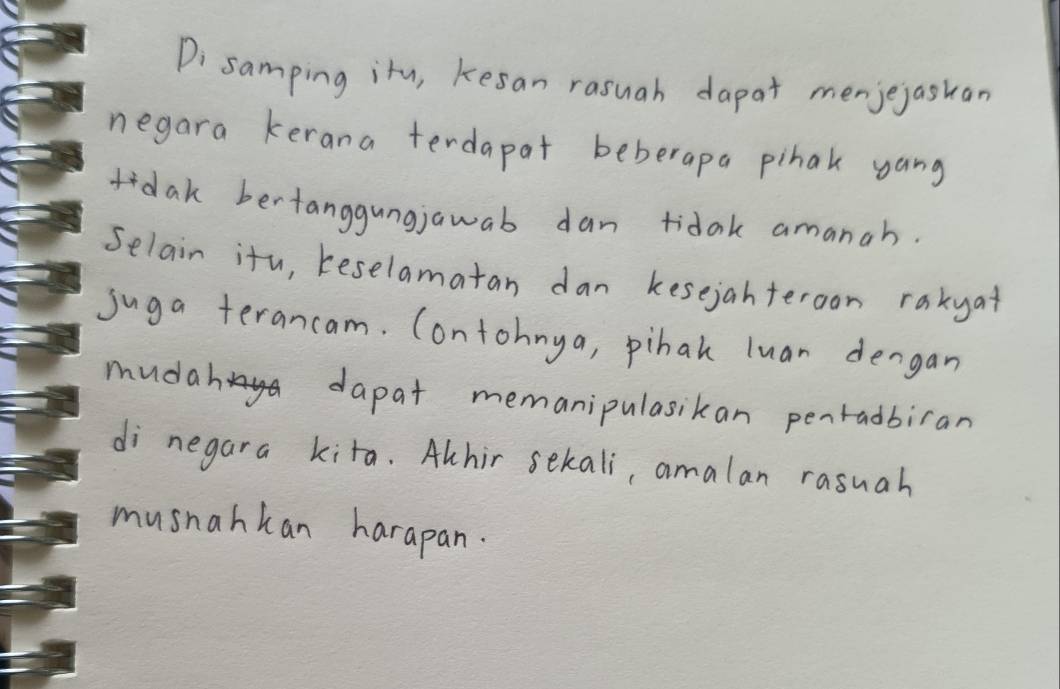 Di samping itu, kesan rasuah dapat menjejaskan
negara kerana terdapat beberapa pihak yang
tidak bertanggungjawab dan tidak amanah.
Selain itu, keselamatan dan kesejahteraan rakyat
juga terancam. Contohnya, pihak luar dengan
mudahnya dapat memanipulasikan pentadbiran
di negara kita. Akhir sekali, amalan rasuah
musnahkan harapan.